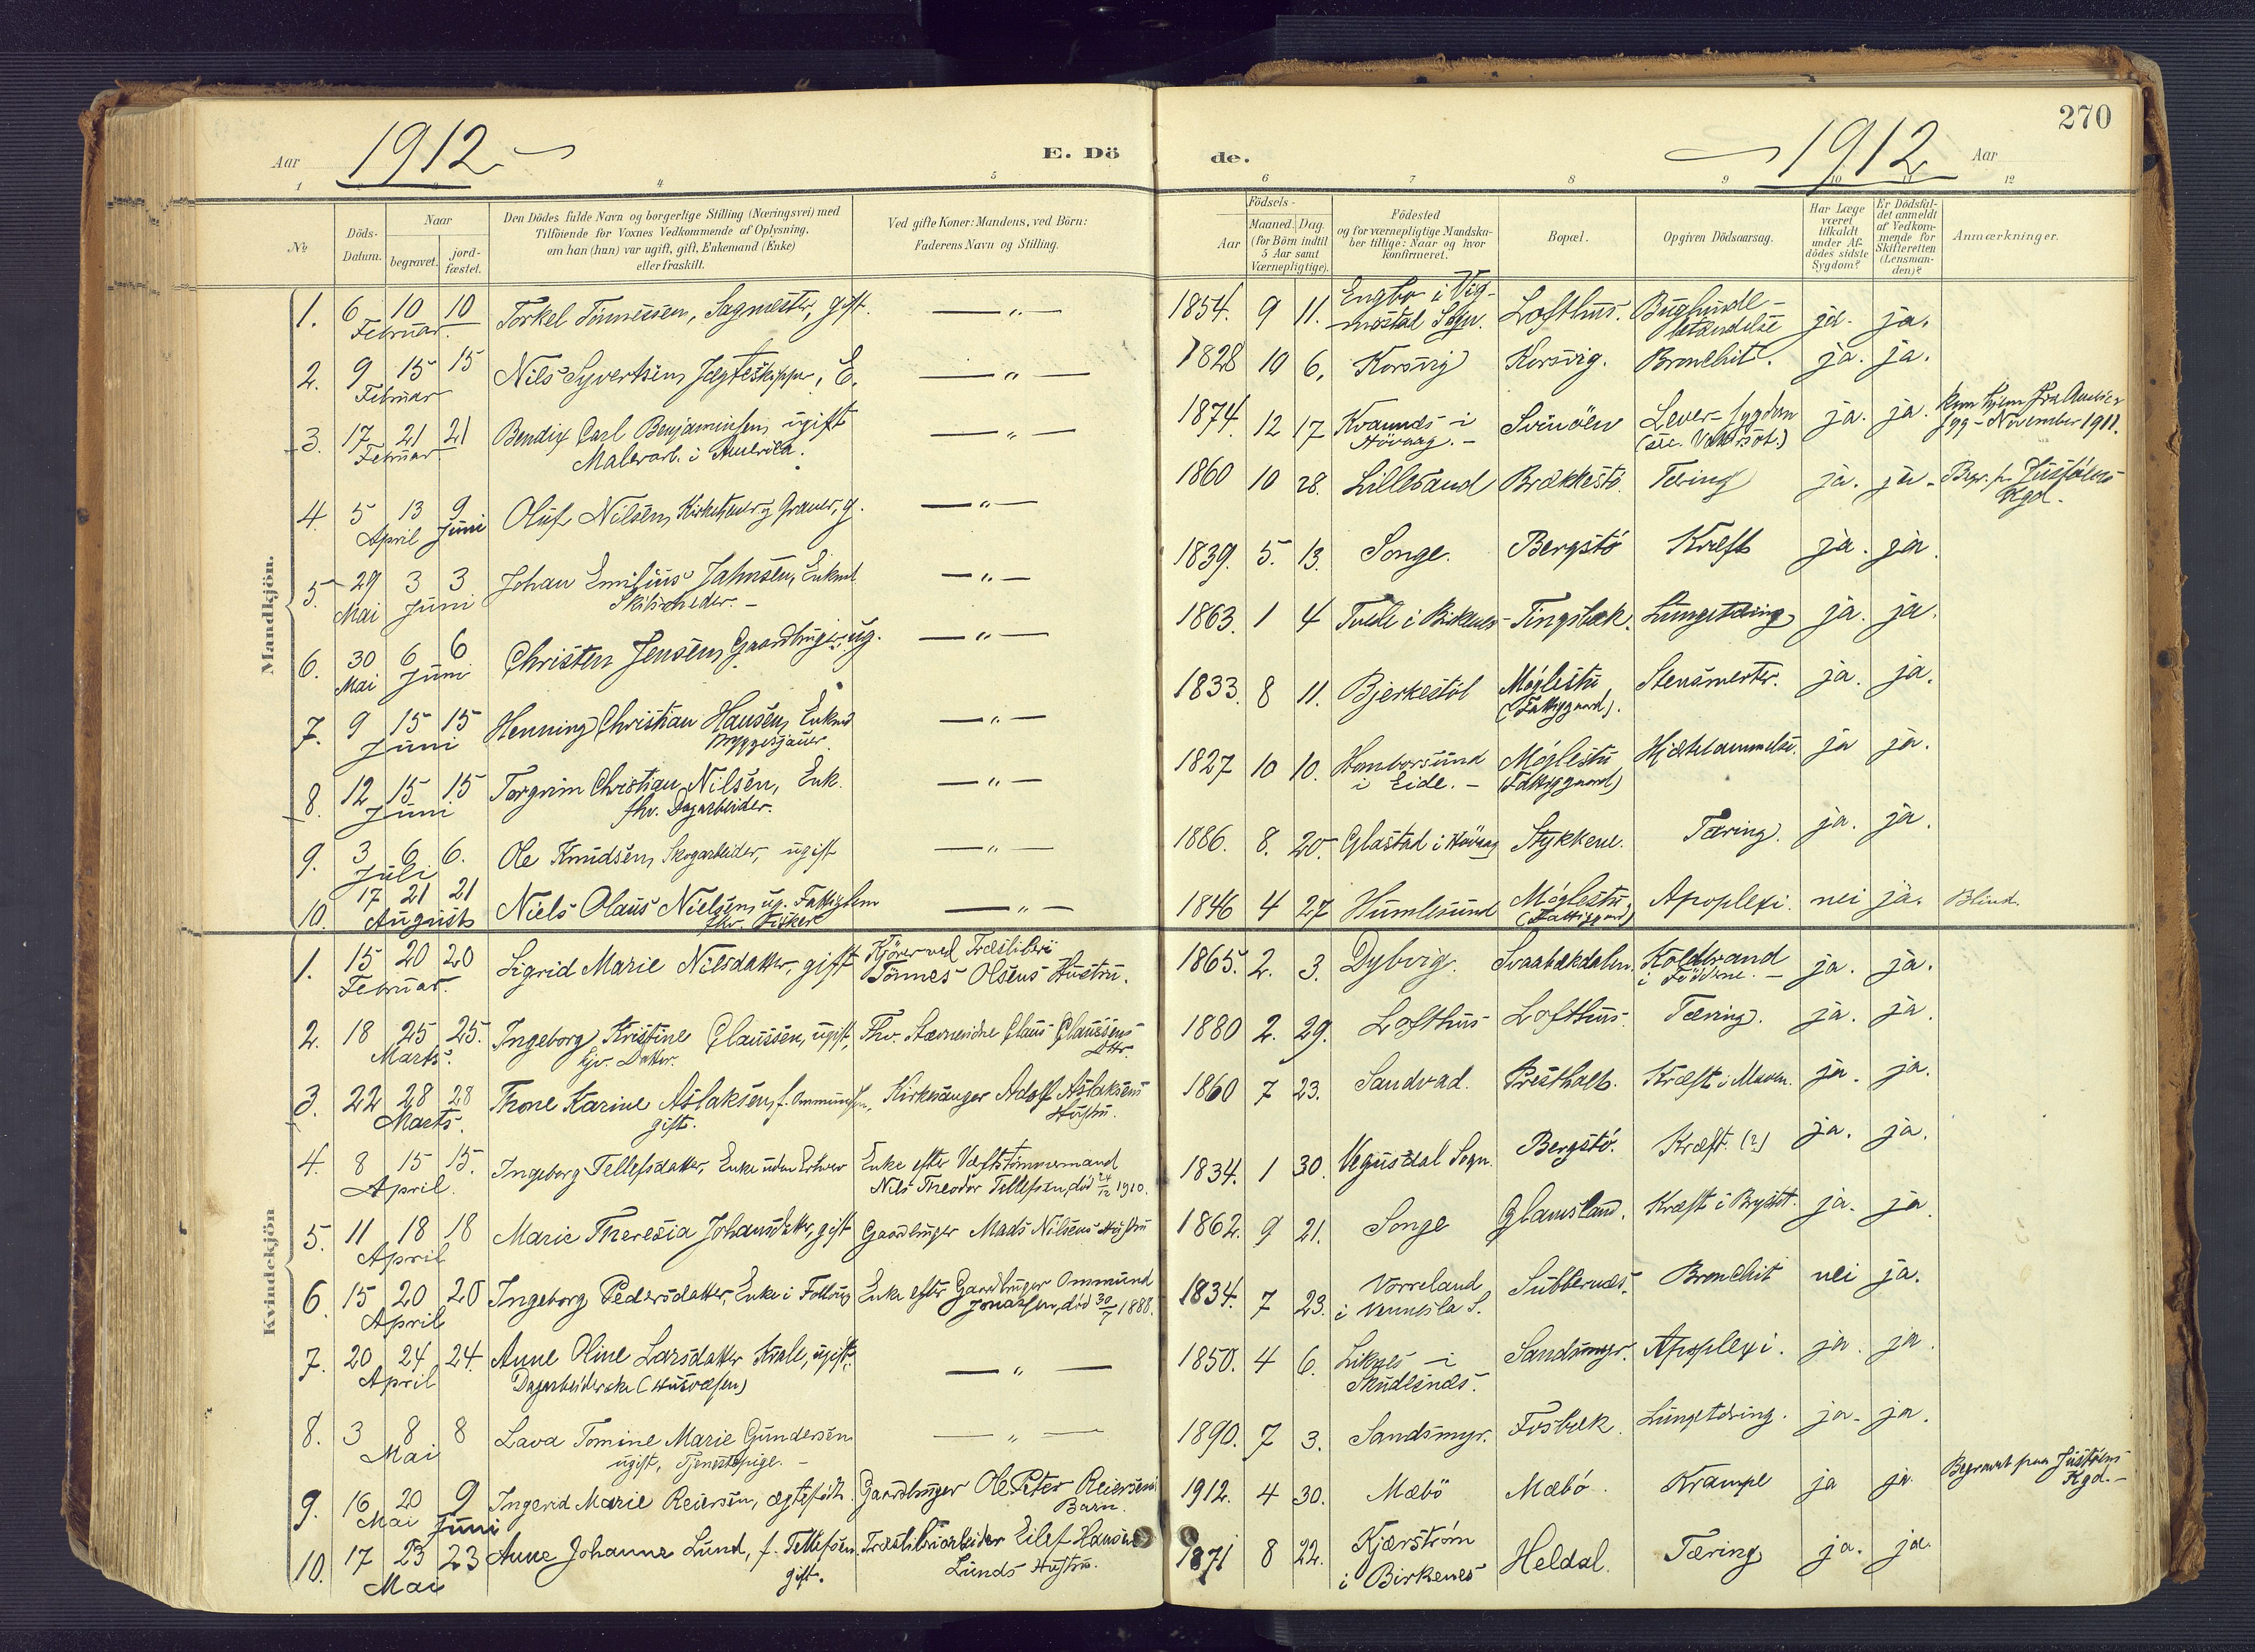 270
Aar 1912
E. Döde.
1912 Aar
1 2 3 4 5 6 7 8 9 10 11 12
№
Döds-Datum.
Naar
begravet.
jord-fæstet.
Den Dödes fulde Navn og borgerlige Stilling (Næringsvei) med
Tilföiende for Voxnes Vedkommende af Oplysning,
om han (hun) var ugift, gift, Enkemand (Enke)
eller fraskilt.
Ved gifte Koner: Mandens, ved Börn:
Faderens Navn og Stilling.
Födsels-
Aar
Maaned. Dag.
(for Börn indtil
5 Aar samt
Værnepligtige).
Födested
og for værnepligtige Mandska-
ber tillige: Naar og hvor
konfirmeret.
Bopæl.
Opgiven Dödsaarsag.
Har Læge
været
tilkaldt
under Af-
dödes sidste
Sygdom?
Er Dödsfal-
det anmeldt
af Vedkom-
mende for
Skifteretten
(Lensman-
den)?
Anmærkninger.
Mandkjön.
1. 6 10 10 Torkel Tönnessen, Sagmester, gift. — " — 1854. 9 11. Lofthus. ja. ja.
Februar mostad Sogn.
2. 9 15 15 Nils Syvertsen, Jægteskipper, E. — " — 1828 10 6. Korsvig Korsvig. Bronchit. ja. ja.
Februar
3. 17 21 21 Bendix Carl Benjaminsen, ugift — " — 1874. 12 17 i Svinöen Lever-sygdom ja. ja. kom hjem fra Amerika
Februar Malerarb. i Amerika. Hövaag. - syg - November 1911.
4. 5 13 9 Oluf Nilsen, Kirketjener og Graver, g. — " — 1860 10 28. Lillesand Brækkestö. Tæring ja. ja. Begr. p. Justöens
April Juni Kgd.
5. 29 3 3 Johan Emilius Jahnsen, Enkmd. — " — 1839. 5. 13. Songe. Bergstö Kræft ja. ja.
Mai Juni
6. 30 6 6 Christen Jensen, Gaardbruger, ug. — " — 1863. 1 4 Tvede i Birkenes Tingsbæk. Lungetæring ja. ja.
Mai Juni
7. 9 15 15 Henning Christian Hansen, Enkmd — " — 1833. 8 11. Bjerkestöl Möglestu ja. ja.
Juni Bryggesjauer. (Fattiggaard).
8. 12 15 15 Torgrim Christian Nilsen, Enk. — " — 1827 10 10. Homborsund Möglestu Hjertelammelse. ja ja.
Juni fhv. Dagarbeider. i Eide. - (Fattiggaard)
9. 3 6 6. Ole Knudsen, Skogarbeider, ugift — " — 1886. 8. 20. Glastad i Hövaag Stykkene. Tæring. ja. ja.
Juli
10. 17 21 21 Niels Olaus Nielsen, ug. Fattiglem — " — 1846 4 27 Humlesund Möglestu Apoplexi. nei ja. Blind.
August fhv. Fisker (Fattiggaard)
Kvindekjön
1. 15 20 20 Sigrid Marie Nilsdatter, gift Kjörer ved Træsliberi 1865. 2. 3. Dybvig. Svaabækdalen. Koldbrand ja. ja.
Februar. Tönnes Olsens Hustru. i Födderne. -
2. 18 25 25. Ingeborg Kristine Claussen, ugift, Fhv. Claus Claussens 1880 2. 29. Lofthus Lofthus. Tæring. ja. ja.
Marts. hjv. Datter. Dtter.
3. 22 28 28 Throne Karine Aslaksen, f. Ommundsen, Kirkesanger Adolf Aslaksens 1860 7 23. Sandvad. Presthalt. Kræft i Maven. ja. ja.
Marts. gift. Hustru.
4. 8 15 15. Ingeborg Tellefsdatter, Enke uden Erhverv Enke efter Værftstömmermand 1834. 1 30. Vegusdal Sogn. Bergstö. Kræft. (?) ja. ja.
April. Nils Theodor Tellefsen, död 24/12 1910.
5. 11 18 18 Marie Theresia Johansdatter, gift Gaardbruger Mads Nilsens Hustru 1862. 9 21. Songe Glamsland. Kræft i Brystet. ja. ja.
April
6. 15 20 20 Ingeborg Pedersdatter, Enke i Enke efter Gaardbruger Ommund 1834. 7 23. Vorreland Subbernæs. Bronchit nei ja.
April Jonassen, död 30/7 1888. i Vennesla S.
7. 20 24 24. Anne Oline Larsdatter ugift, — " — 1850. 4 6. i Sandsmyr. Apoplexi. ja. ja.
April Dagarbeiderske (Husvæsen) Skudesnæs.
8. 3 8 8 Lava Tomine Marie Gundersen — " — 1890. 7 3. Sandsmyr. Fosbæk. Lungetæring. ja. ja.
Mai ugift, Tjenestepige. -
9. 16 20 9 Ingerid Marie Reiersen, ægtefödt. Gaardbruger Ole Peter Reiersens 1912. 4 30. Mæbö Mæbö. Krampe ja ja. Begravet paa Justöens
Mai Juni Barn. Kgd. -
10. 17 23 23 Anne Johanne Lund, f. Tellefsen. Træsliberiarbeider Eilef Hansen 1871 8 22. Kjærström Heldal. Tæring ja. ja.
Mai gift. Lunds Hustru. i Birkenes